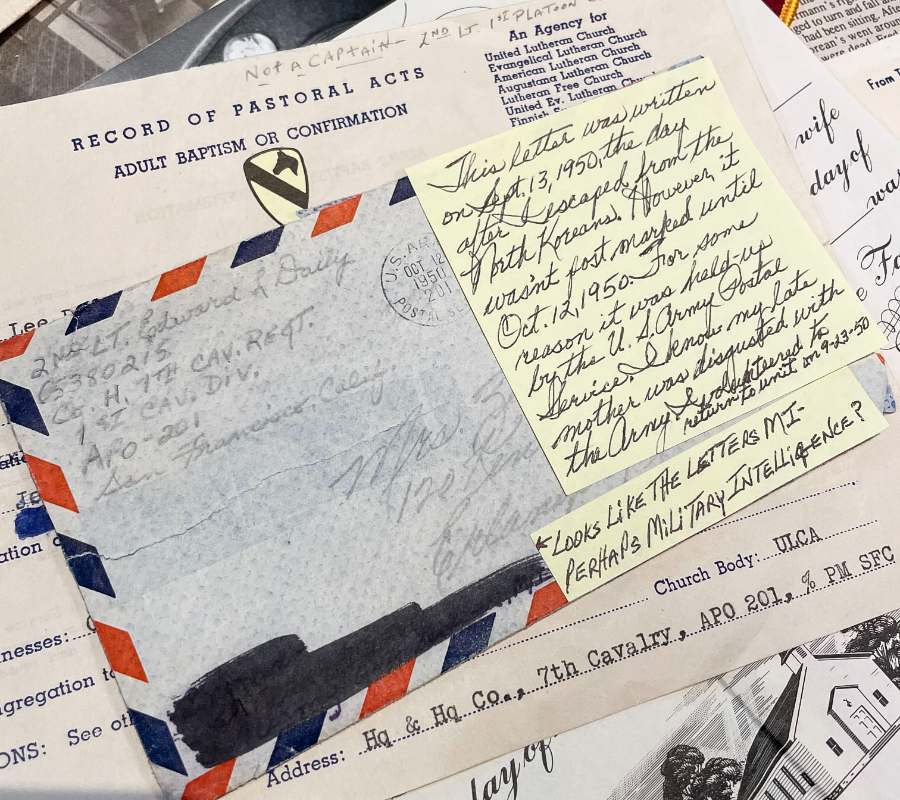 NOT A CAPTAIN - 2ND LT. 1ST PLATOON
RECORD OF PASTORAL ACTS
ADULT BAPTISM OR CONFIRMATION
An Agency for
United Lutheran Church
Evangelical Lutheran Church
American Lutheran Church
Augustana Lutheran Church
Lutheran Free Church
United Ev. Lutheran Church
Finnish
This letter was written
on Sept. 13, 1950, the day
after I escaped from the
North Koreans. However, it
wasn't post marked until
Oct. 12, 1950. For some
reason it was held-up
by the U.S. Army Postal
Service. I know my late
mother was disgusted with
the Army. I volunteered to
return to unit on 9-23-50
LOOKS LIKE THE LETTERS MI-
PERHAPS MILITARY INTELLIGENCE?
2ND LT. Edward L Daily
CO. H, 7TH CAV. REGT.
1ST CAV. DIV.
APO-201
San Francisco, Calif.
OCT 12
1950
201
Mrs.
Lee
nesses:
ONS: See
Church Body: ULCA
Address: Hq & Hq Co., 7th Cavalry, APO 201, % PM SFC
day of
wife
day of
From
had been sitting.